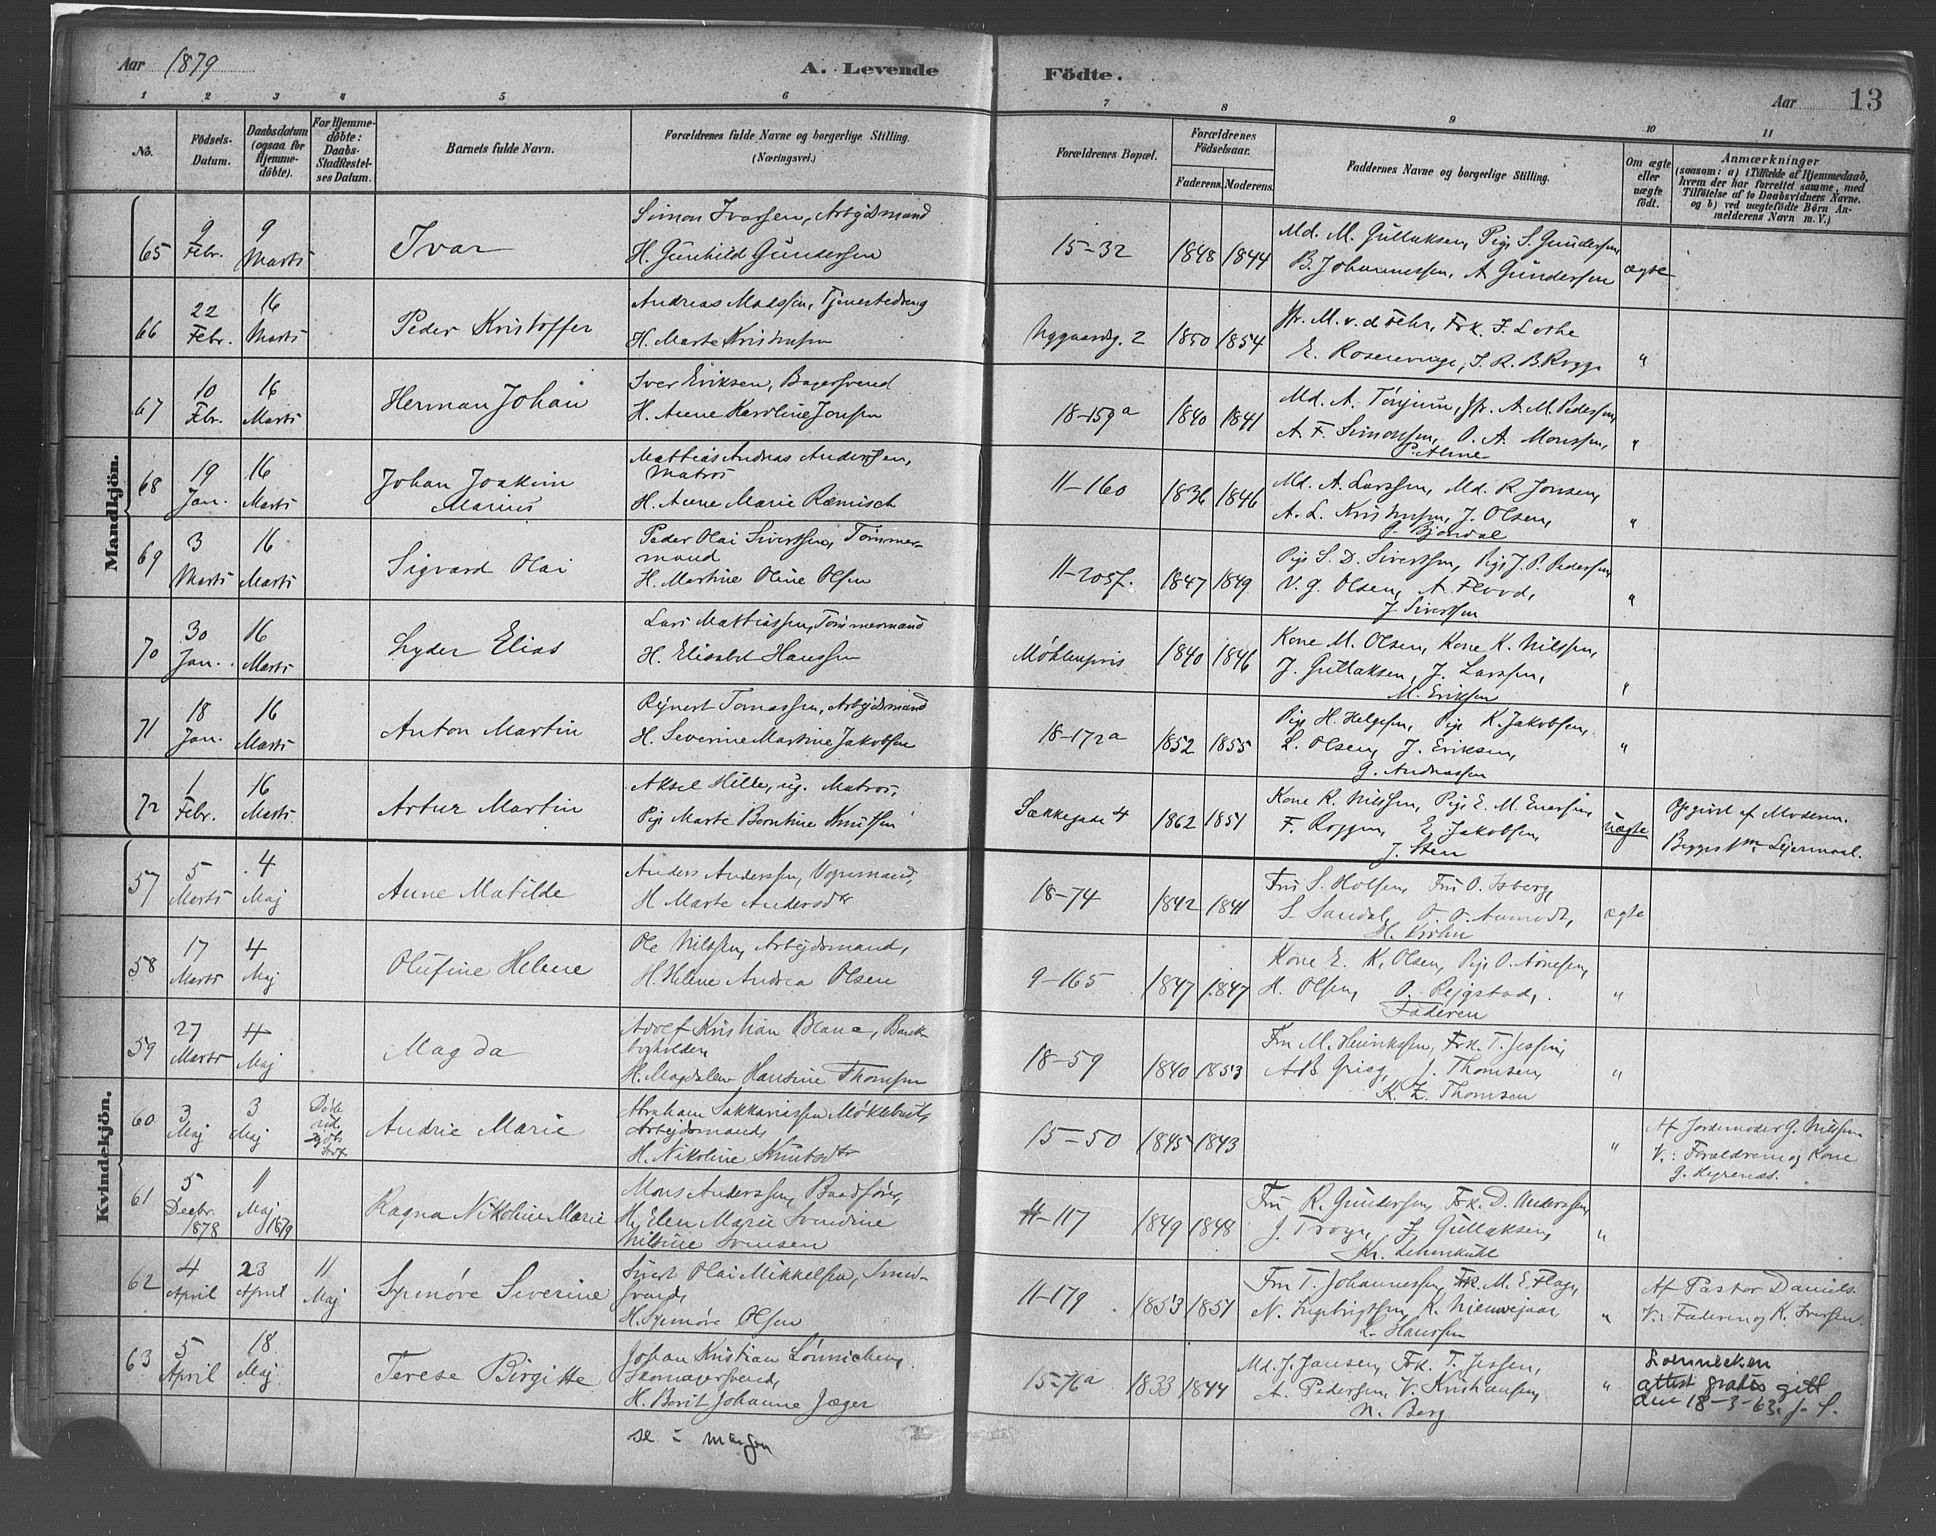 Aar 1879
A. Levende Födte.
Aar 13
1 2 3 4 5 6 7 8 9 10 11
No.
Födsels-Datum.
Daabsdatum (ogsaa for Hjemmedöbte).
For Hjemmedöbte: Daabs-Stadfæstelses Datum.
Barnets fulde Navn.
Forældrenes fulde Navne og borgerlige Stilling.
(Næringsvei.)
Forældrenes Bopæl.
Forældrenes Födselsaar.
Faderens. Moderens.
Faddernes Navne og borgerlige Stilling.
Om ægte eller uægte födt.
Anmærkninger
(saasom: a) i Tilfælde af Hjemmedaab,
hvem der har forrettet samme, med
Tilföielse af to Daabsvidners Navne.
og b) ved uægtefödte Börn Anmelderens Navn m. V.)
Mandkjön.
65 9 Febr. 9 Marts Ivar
Simon Ivarsen, Arbejdsmand
H. Gunhild Gundersen
15-32 1848 1844
Md. M. Gullaksen, Pige S. Gundersen,
B. Johannessen, A Gundersen
ægte
66 22 Febr. 16 Marts Peder Kristoffer
Andreas Madssen, Tjenestedreng
H. Marte
Nygaardsg. 2 1850 1854
Frk. J. Lothe
E. Rosenvinge,
"
67 10 Febr. 16 Marts Herman Johan
Iver Eriksen, Bagersvend
H. Anne Karoline Jonsen
18-159a 1840 1841
Md. A. Tönjum, Jfr. A. M. Pederssen,
A. F. Simonsen, O. A. Monssen,
"
68 19 Jan. 16 Marts Johan Joakim
Marius
Mattias Andreas Anderssen,
Matros
H. Anne Marie Ræmisch
11-160 1836 1846
Md. A. Larssen, Md. R. Jonsen,
A. L. J. Olsen,
"
69 3 Marts 16 Marts Sigvard Olai
Peder Olai Sivertsen, Tömmermand
H. Martine Oline Olsen
11-205 1847 1849
Pige S. D. Sivertssen, Pige J. P. Pedersen,
V. G. Olsen, A. Flood,
J. Sivertsen
"
70 30 Jan. 16 Marts Lyder Elias
Lars Mattiassen, Tömmermand
H. Elisabet Hanssen
Möhlenpris 1840 1846
Kone M. Olsen, Kone K. Nilssen,
J. Gullaksen, J. Larssen,
M. Eriksen
"
71 18 Jan. 16 Marts Anton Martin
Rejnert Tomassen, Arbejdsmand
H. Severine Martine Jakobsen
18-172a 1852 1855
Pige H. Helgesen, Pige K. Jakobsen,
L. Olsen, J. Eriksen,
G. Andreassen
"
72 1 Febr. 16 Marts Artur Martin
Aksel Hille, ug. Matros,
Pige Marte Berntine Knutsen
Sækkegade 4 1862 1851
Kone R. Nilssen, Pige E. M. Enersen,
F. Roggen, E. Jakobsen,
J. Sten
uægte
Opgivet af Moderen.
Begges 1ste Lejermaal.
Kvindekjön.
57 5 Marts 4 Maj Anne Matilde
Anders Anderssen, Vognmand,
H Marte Andersdtr
18-74 1842 1841
Fru S. Holsen, Fru O. Isberg,
S. Sandal, O. O. Aamodt,
H. Krohn
ægte
58 17 Marts 4 Maj Olufine Helene
Ole Nilssen, Arbejdsmand,
H. Helene Andrea Olsen
9-165 1847 1847
Kone E. K. Olsen, Pige O. Arnesen,
H. Olsen, O. Rejgstad,
Faderen
"
59 27 Marts 4 Maj Magda
Adolf Kristian Blane, Bankbogholder,
H. Magdalene Hansine Thomsen
18-59 1840 1853
Fru M. Henrikssen, Frk. T. Jessen,
A B Grieg, J. Thomsen,
K. Z. Thomsen
"
60 3 Maj 3 Maj Döde
Andrie Marie
Abraham Sakkariassen Möklebust,
Arbejdsmand,
H. Nikoline Knutsdtr
15-50 1845 1843
"
Af Jordemoder G. Nilssen
V.: Forældrene og Kone
61 5 Decbr. 1878 11 Maj 1879 Ragna Nikoline Marie
Mons Anderssen, Baadförer,
H. Elen Marie Svendrine
Nilsine Svensen
11-117 1849 1848
Fru R. Gundersen, Frk. D. Anderssen,
J. Troye, J. Gullaksen,
Kr. Lehmkuhl
"
62 4 April 23 April 11 Maj Synnöve Severine
Sivert Olai Mikkelsen, Smedsvend,
H. Synnöve Olsen
11-179 1853 1851
Fru T. Johannessen, Frk. M. E. Flage,
N. Ingebrigtsen, K. Nieuwejaar,
L. Hanssen
"
Af Pastor Daniels.
V.: Faderen og K. Iversen.
63 5 April 18 Maj Terese Birgitte
Johan Kristian Lönnichen,
Skomagersvend,
H. Berit Johanne Jæger
15-76a 1833 1844
Md. J. Jansen, Frk. T. Jessen,
A. Pedersen, V. Kristiansen,
N. Berg
"
Lonnecken
attest gratis gitt
den 18-3-63. J. S.
se i margen